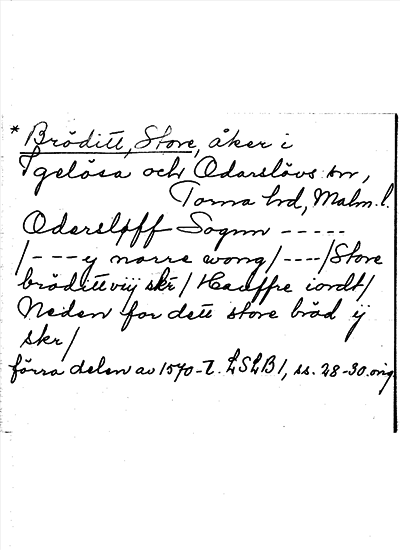 * Bröditt, Store, åker i
Igelösa och Odarslövs snr,
Torna hd, Malm. l.
Odersløff Sognn -----
/---y norre wong/----/Store
brödittviij skr/ Hauffre iordt/
Neden for dett store bröd ij
skr/
förra delen av 1570-t. LSLB1, ss. 28-30. orig